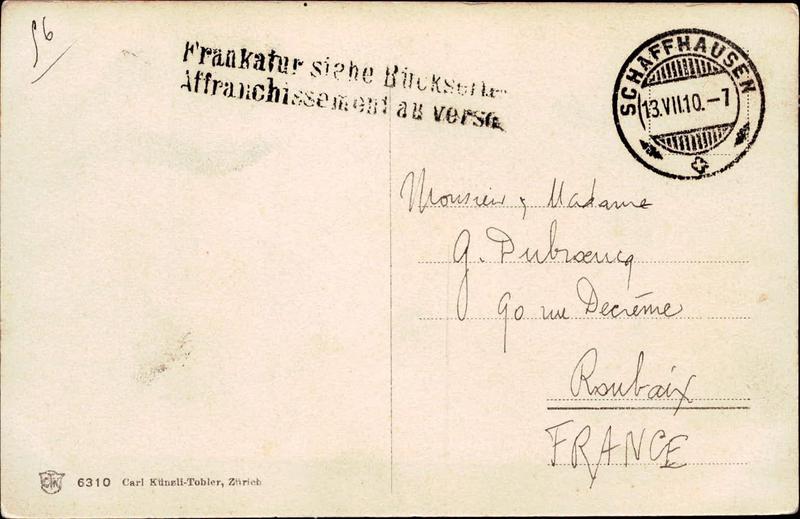 56
Frankatur siehe Rückseite
Affranchissement au verso.
SCHAFFHAUSEN
13.VII.10.-7
Monsieur & Madame
G. Dubrœucq
90 rue Decrême
Roubaix
FRANCE
CTK
6310 Carl Künzli-Tobler, Zürich